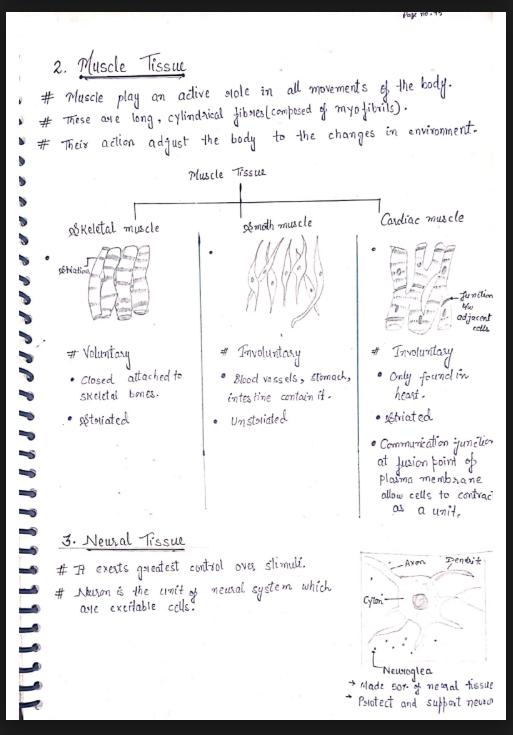 Page no. 45
2. Muscle Tissue
# Muscle play an active role in all movements of the body.
# These are long, cylindrical fibres (composed of myofibrils).
# Their action adjust the body to the changes in environment.
Muscle Tissue
Skeletal muscle
Smoth muscle
Cardiac muscle
Striation
Junction
b/w
adjacent
cells
# Voluntary
• Closed attached to
skeletal bones.
• Striated
# Involuntary
• Blood vessels, stomach,
intestine contain it.
• Unstriated
# Involuntary
• Only found in
heart.
• Striated
• Communication junction
at fusion point of
plasma membrane
allow cells to contrac
as a unit.
3. Neural Tissue
# It exerts greatest control over stimuli.
# Neuron is the unit of neural system which
are excitable cells.
Axon
Dendrit
Cyton
Neuroglea
→ Made 50% of neural tissue
→ Protect and support neuro